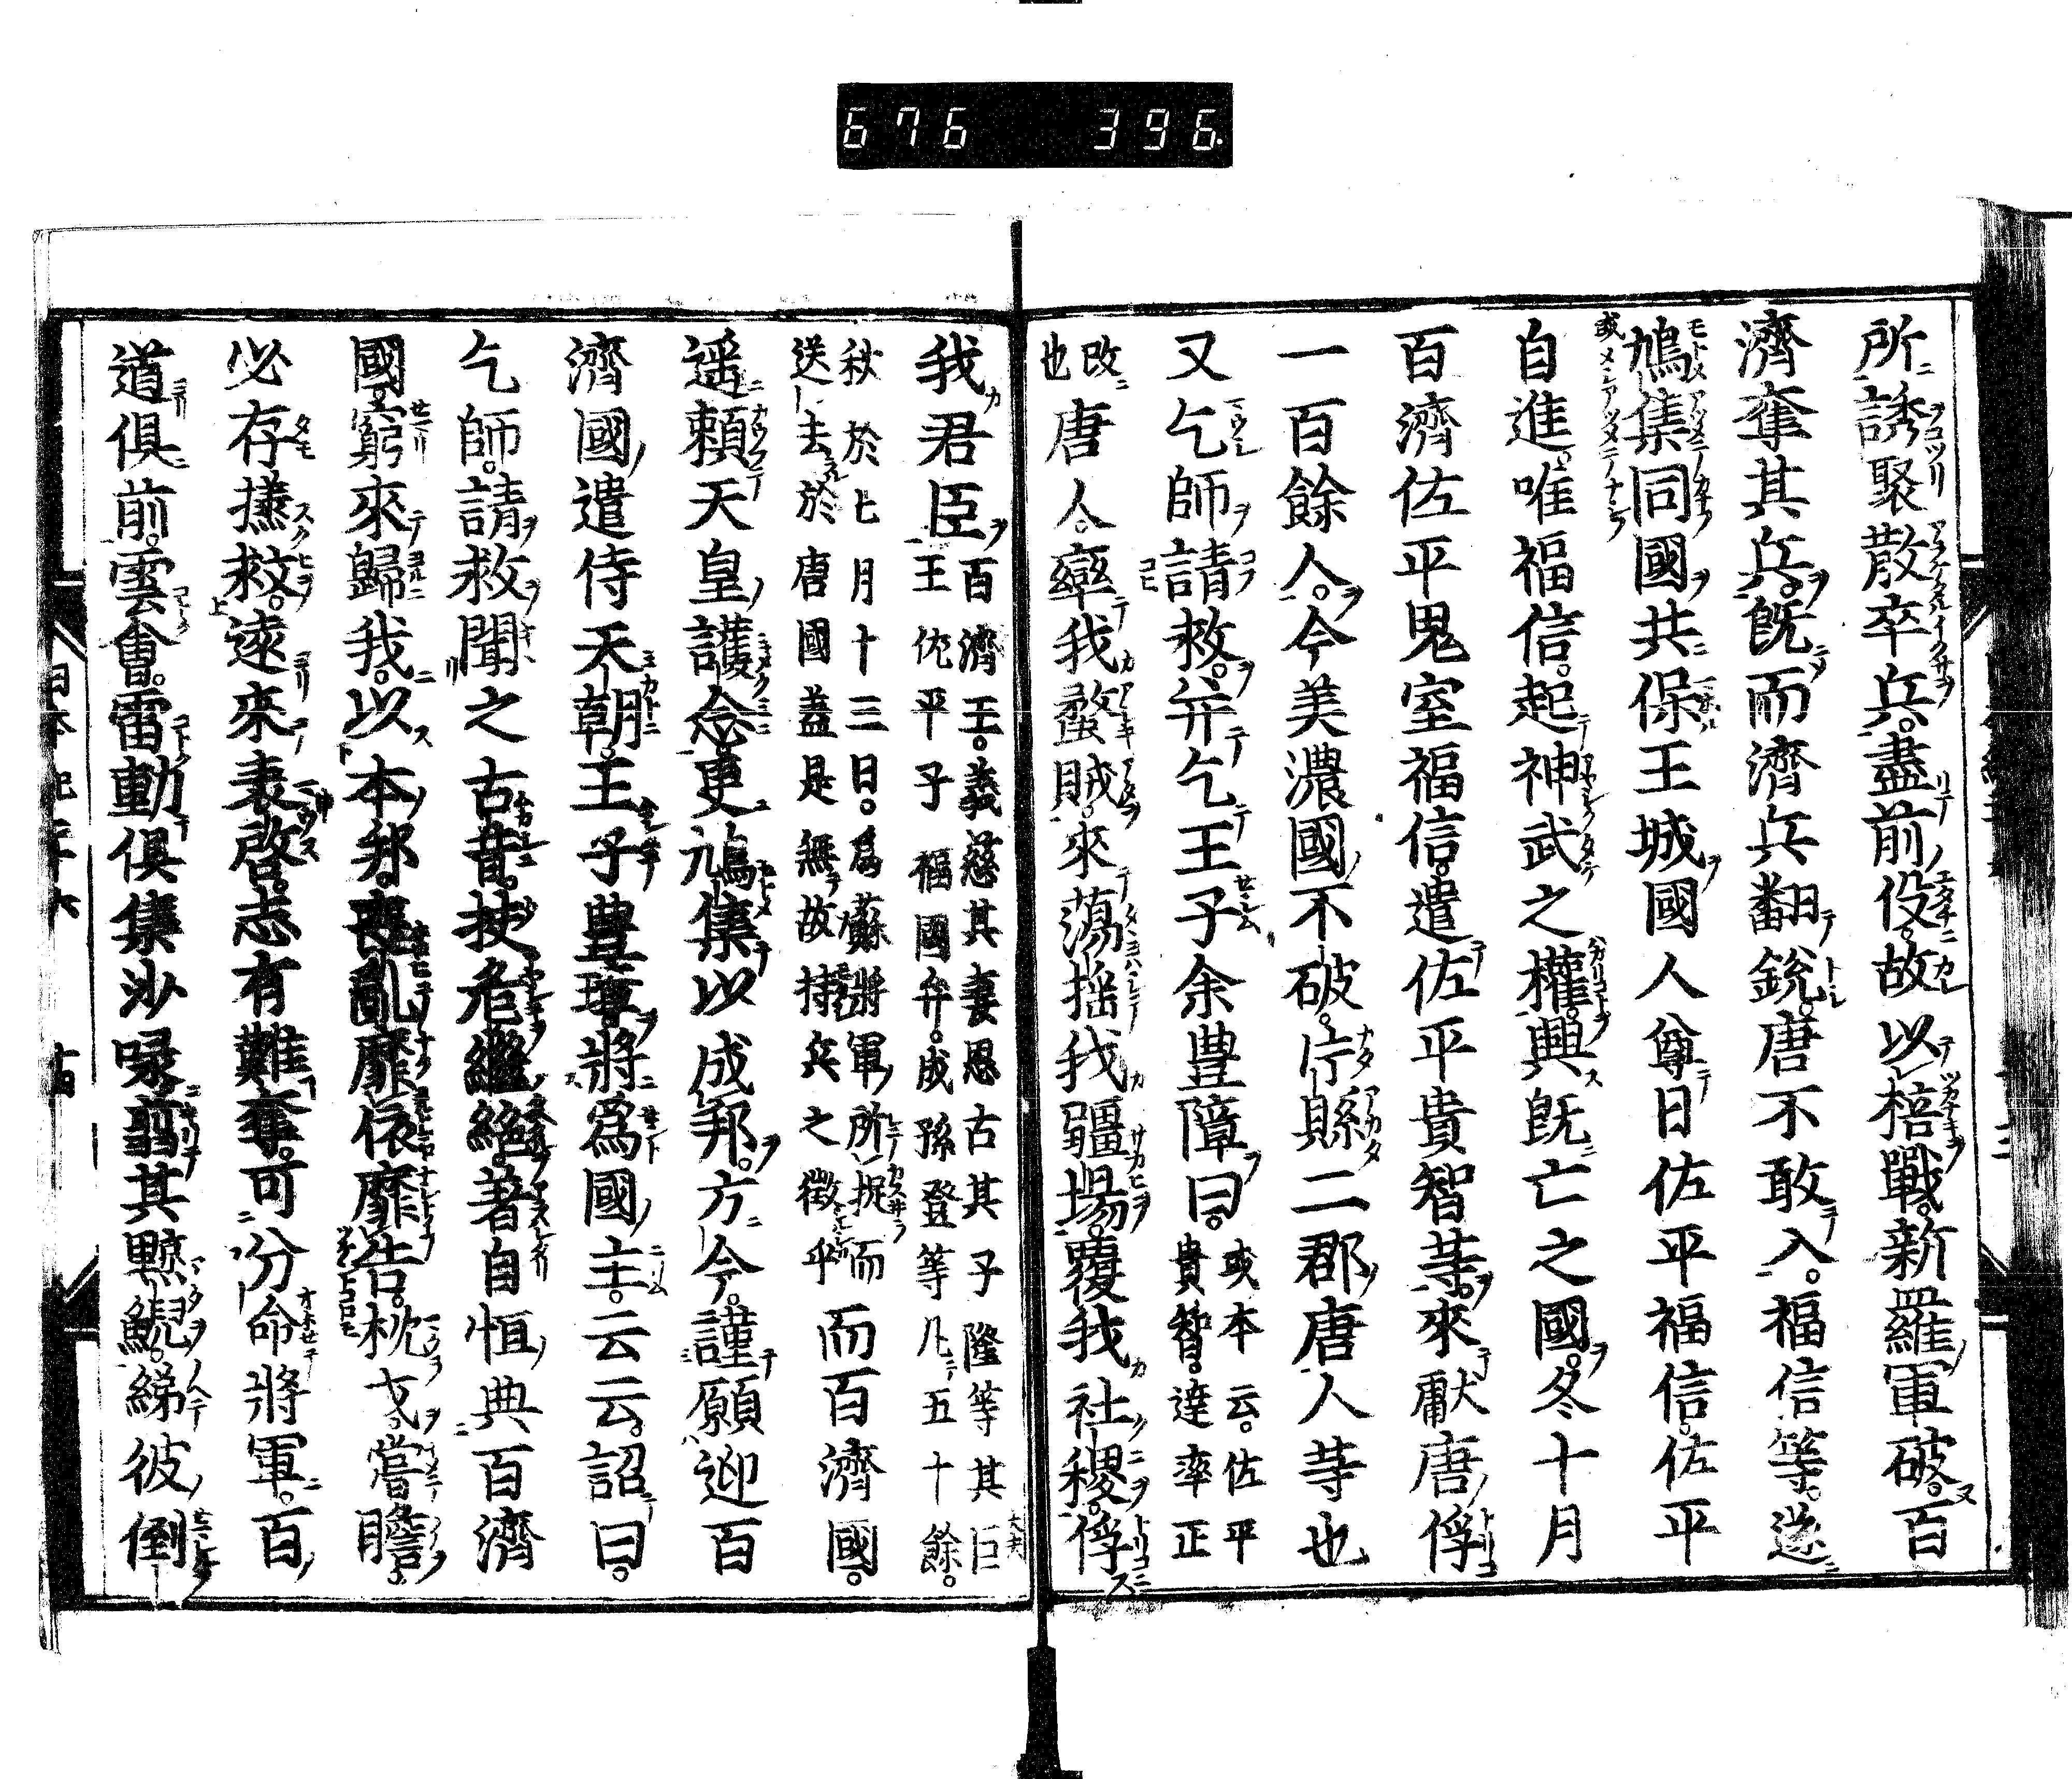 676 396
所誘聚散卒兵。盡前役。故以棓戰。新羅軍破。百
濟奪其兵。既而濟兵翻銳。唐不敢入。福信等。遂
鳩集同國。共保王城。國人尊曰佐平福信。佐平
自進。唯福信。起神武之權。興既亡之國。冬十月
百濟佐平鬼室福信。遣佐平貴智等。來獻唐俘
一百餘人。今美濃國不破。片縣二郡唐人等也
又乞師請救。并乞王子余豐障曰。
或本云。佐平
貴智。達率正
珎
也
唐人。率我蝥賊。來蕩搖我疆場。覆我社稷。俘
我君臣。
百濟王。義慈其妻恩古其子隆等其臣
王佐平千福國弁。成孫登等凡五十餘。
秋於七月十三日。爲蘇將軍所捉而
送去於唐國蓋是無故持兵之徵乎
而百濟國。
遥賴天皇護念更鳩集以成邦。方今。謹願迎百
濟國遣侍天朝。王子豐璋。將爲國主。云云。詔曰。
乞師。請救聞之古昔。扶危繼絕。著自恒典百濟
國。窮來歸我。以本邦。喪亂靡依靡告。枕戈。嘗膽。
必存拯救。遠來表啓。志有難奪。可分命將軍。百
道俱前。雲會。雷動俱集沙㖨翦其鯨鯢。紓彼倒